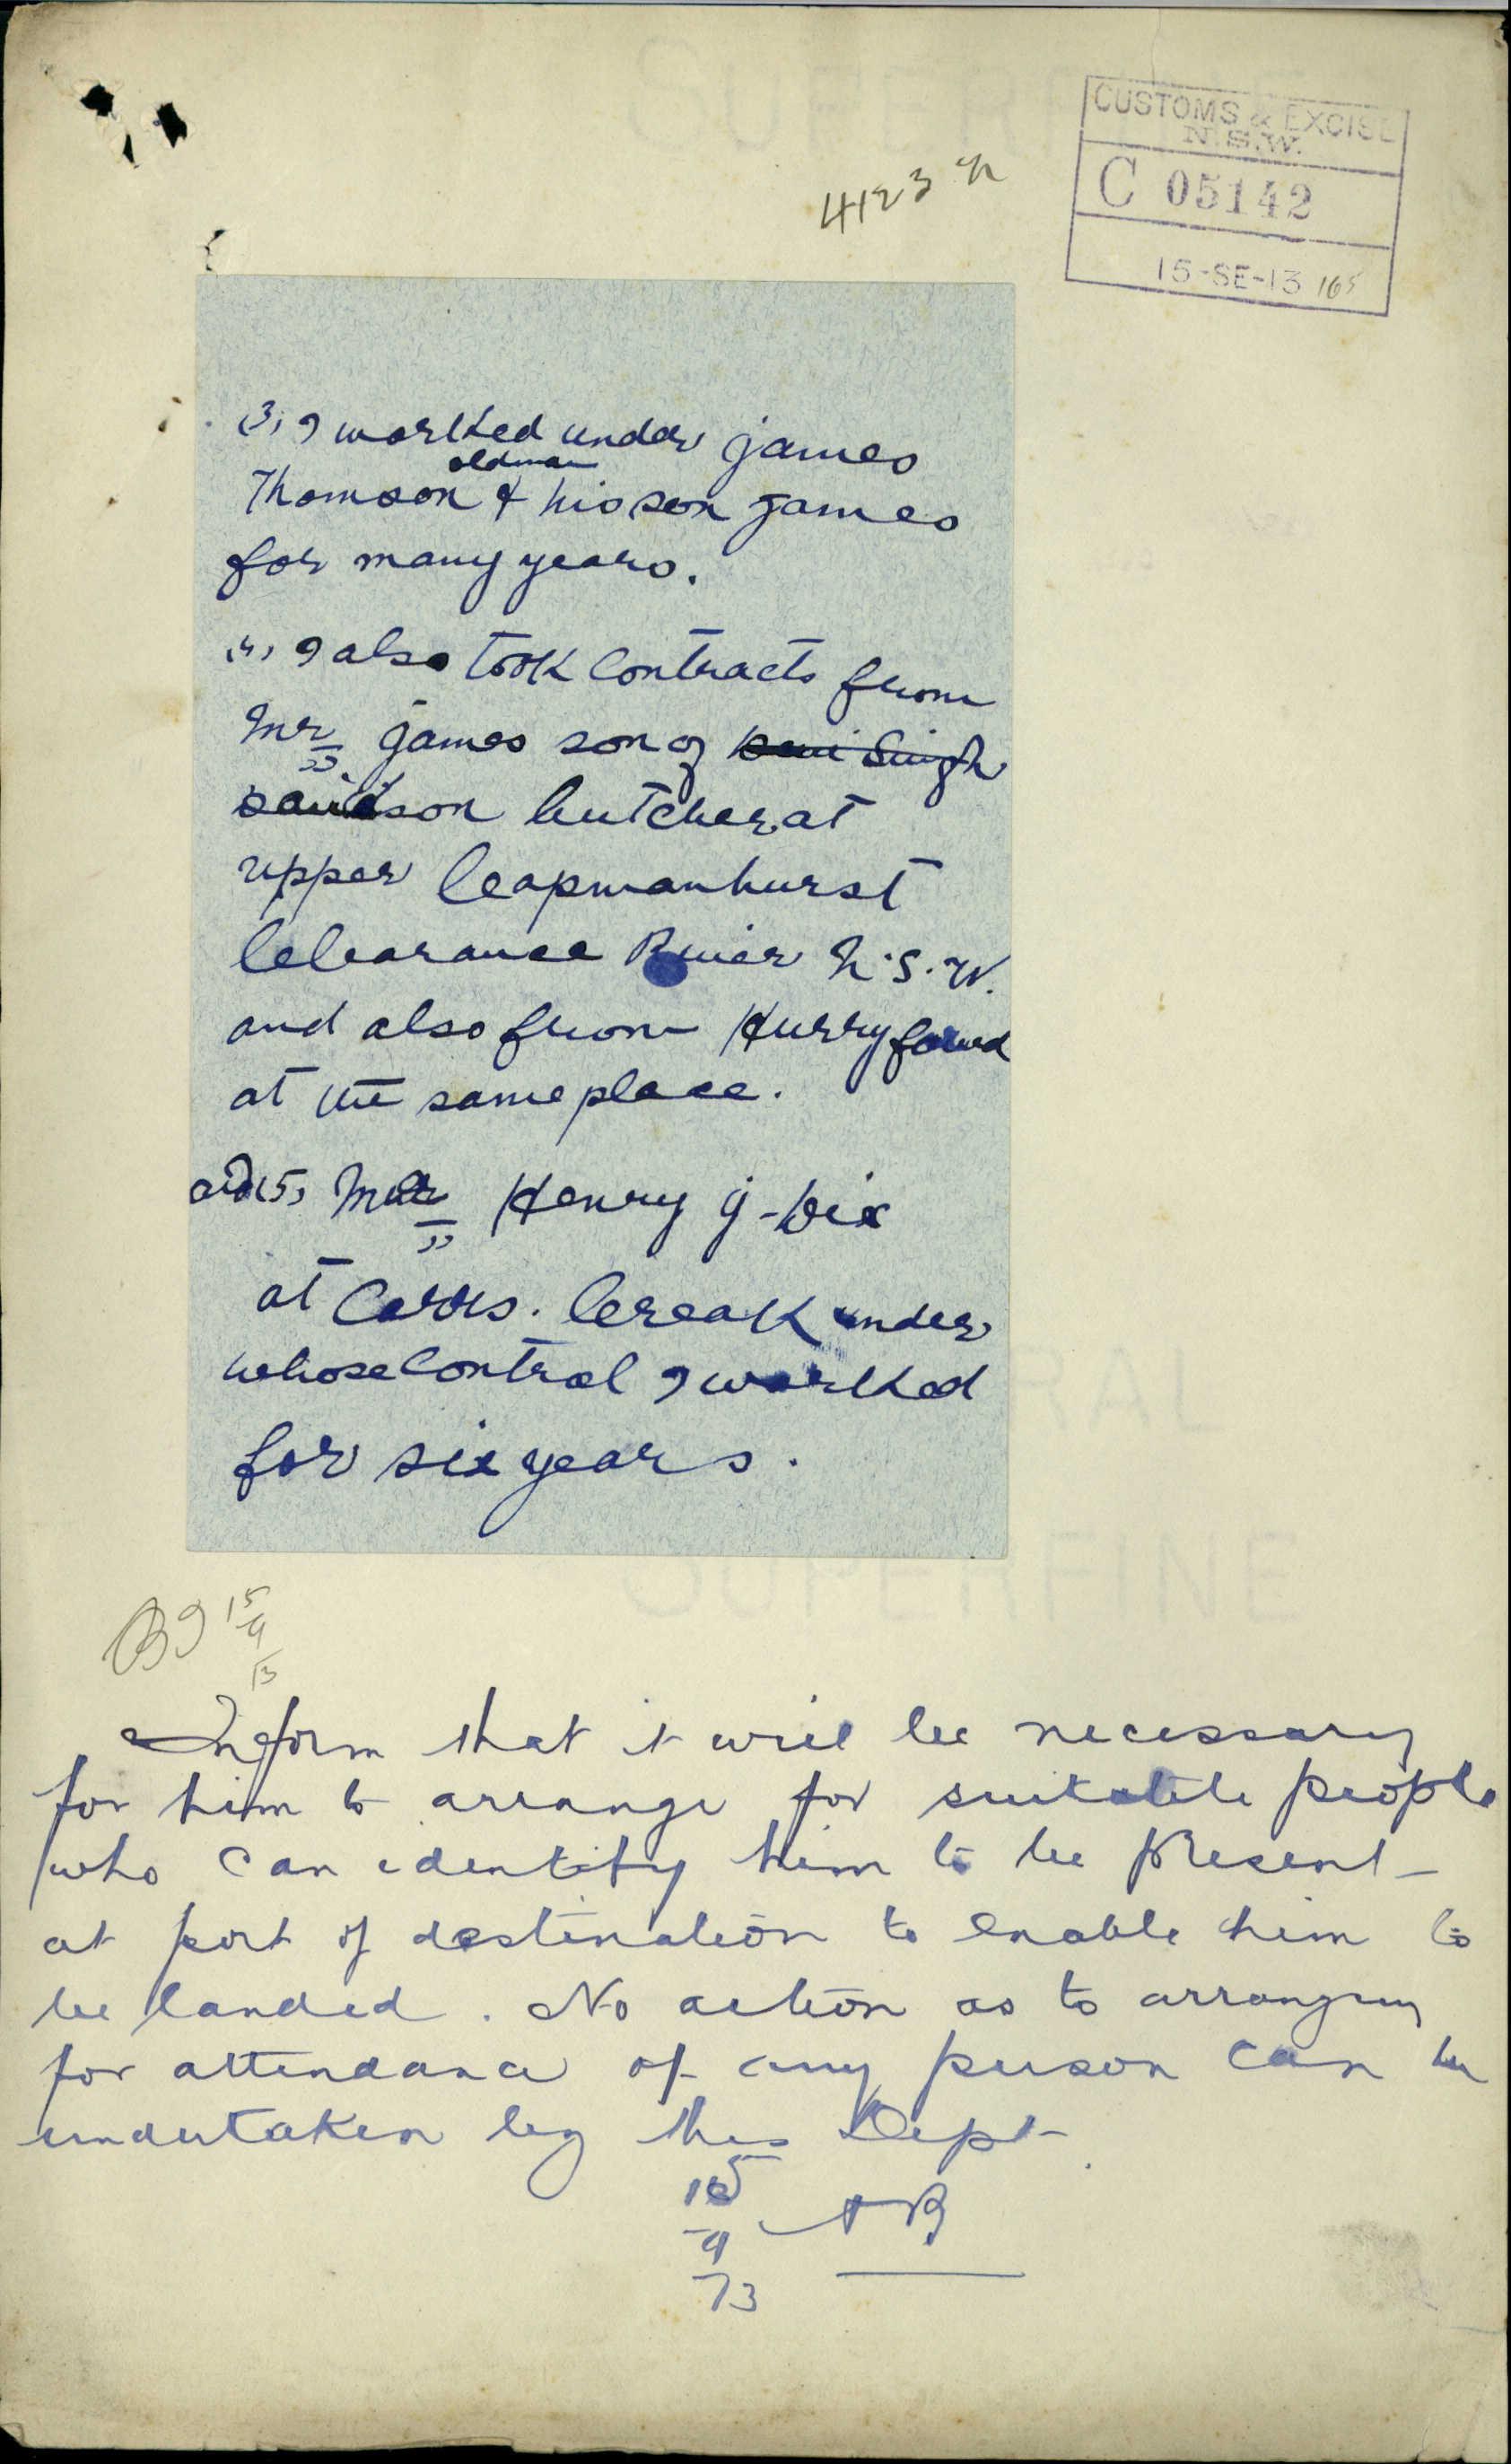 CUSTOMS & EXCISE
N.S.W.
C 05142
15-SE-13 165
4123
(3) I worked under james
oldman
Thomson & his son James
for many years.
(4) I also took Contracts from
Mr james son of Devi Singh
davidson butcher at
upper Copmanhurst
Clearance River N.S.W.
and also from Hurry
at the same place.
and (5) Mr Henry J-Dix
at Carrs. Creak under
whose Control I worked
for six years.
15
9
13
Inform that it will be necessary
for him to arrange for suitable people
who can identify him to be present
at port of destination to enable him to
be landed. No action as to arranging
for attendance of any person can be
undertaken by this Dept.
15
9
13
RAL
SUPERFINE